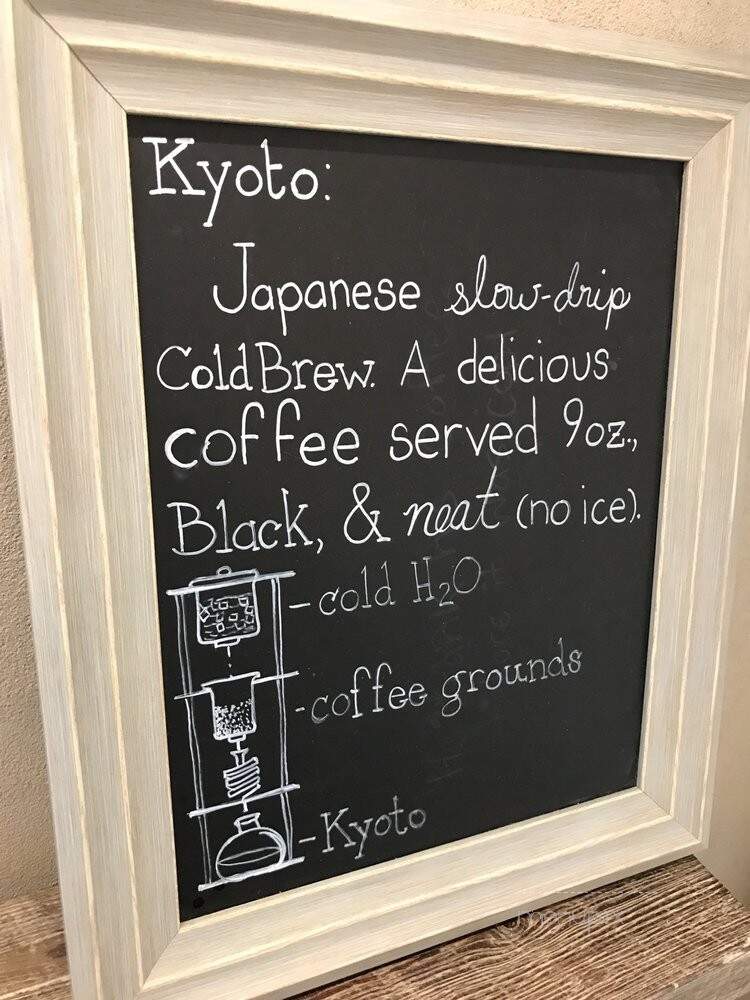 Kyoto:
Japanese slow-drip
Cold Brew. A delicious
coffee served 9oz.,
Black, & neat (no ice).
-cold H₂O
-coffee grounds
-Kyoto